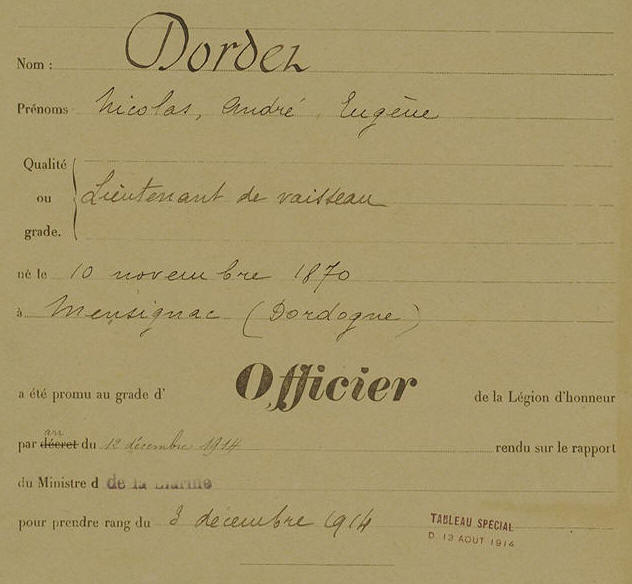 Nom : Dordez
Prénoms Nicolas, André, Eugène
Qualité
ou Lieutenant de vaisseau
grade.
né le 10 novembre 1870
à Mensignac (Dordogne)
a été promu au grade d' Officier de la Légion d'honneur
arr
par décret du 12 décembre 1914 rendu sur le rapport
du Ministre d de la Marine
pour prendre rang du 3 décembre 1914
TABLEAU SPÉCIAL
D. 13 AOUT 1914